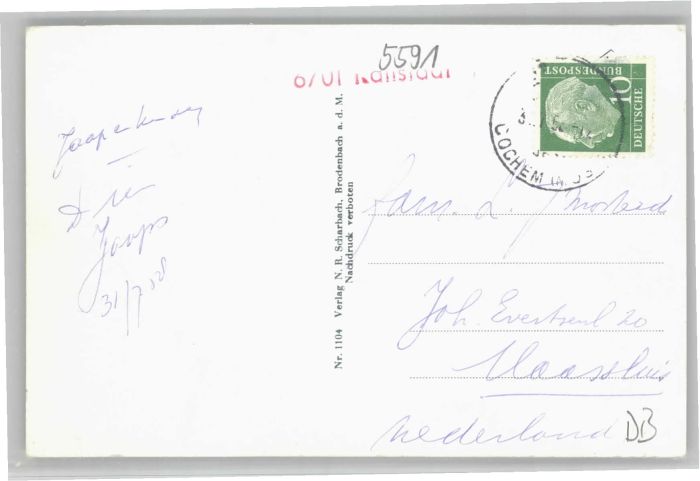 5591
6701 Kallstadt
10
DEUTSCHE
BUNDESPOST
COCHEM
Drie
Jaaps
31/7 '58
Nr. 1104 Verlag N. R. Scharbach, Brodenbach a. d. M.
Nachdruck verboten
Fam. L.
Joh. Evertsenl 20
Maassluis
Nederland
DB